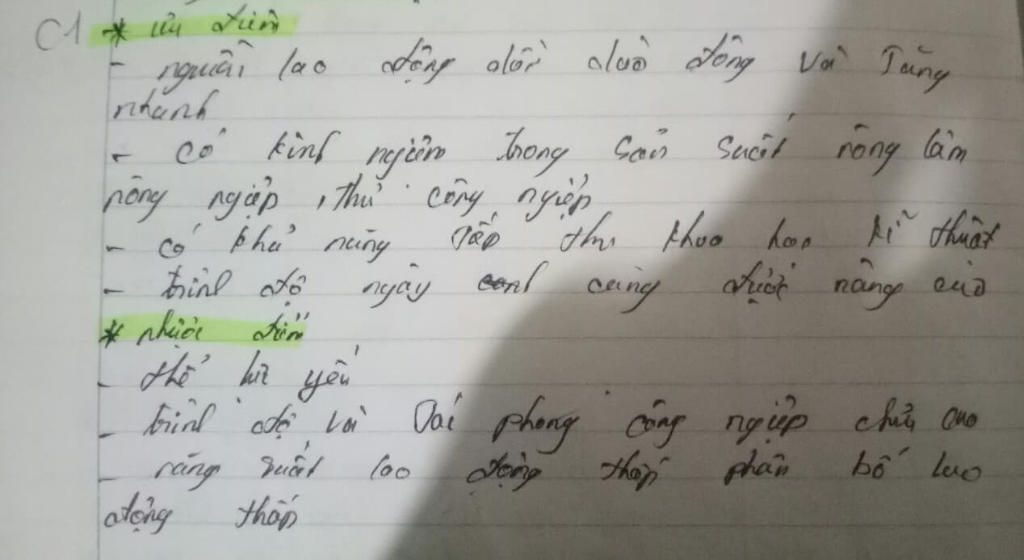 C1 * ưu điểm
- nguồn lao động dồi dào đông và Tăng
nhanh
- có kinh ngiệm trong sản suất nông lâm
nông ngiệp, thủ công ngiệp
- có khả năng tiếp thu khoa học kĩ thuật
- trình độ ngày càng được nâng cao
* nhược điểm
- thể lực yếu
- trình độ và tác phong công ngiệp chưa cao
- năng suất lao động thấp phân bố lao
động thấp